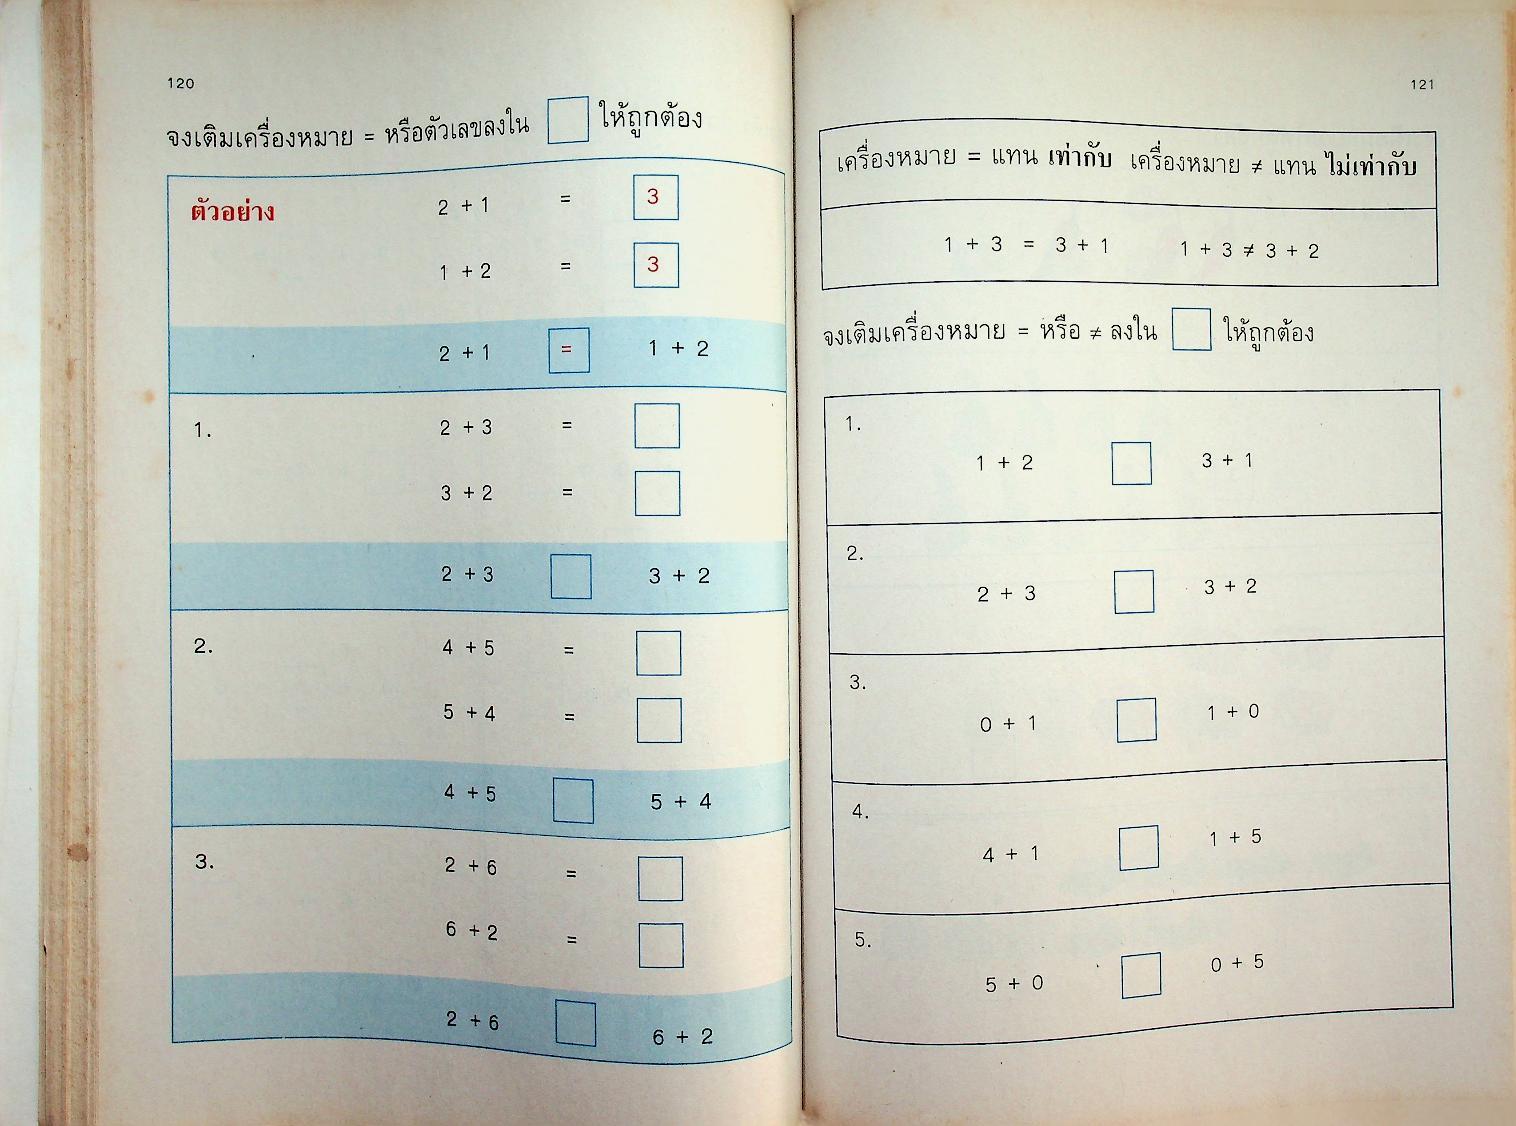 120
จงเติมเครื่องหมาย = หรือตัวเลขลงใน ให้ถูกต้อง
ตัวอย่าง 2 + 1 = 3
1 + 2 = 3
2 + 1 = 1 + 2
1. 2 + 3 =
3 + 2 =
2 + 3 3 + 2
2. 4 + 5 =
5 + 4 =
4 + 5 5 + 4
3. 2 + 6 =
6 + 2 =
2 + 6 6 + 2
121
เครื่องหมาย = แทน เท่ากับ เครื่องหมาย ≠ แทน ไม่เท่ากับ
1 + 3 = 3 + 1 1 + 3 ≠ 3 + 2
จงเติมเครื่องหมาย = หรือ ≠ ลงใน ให้ถูกต้อง
1.
1 + 2 3 + 1
2.
2 + 3 3 + 2
3.
0 + 1 1 + 0
4.
4 + 1 1 + 5
5.
5 + 0 0 + 5